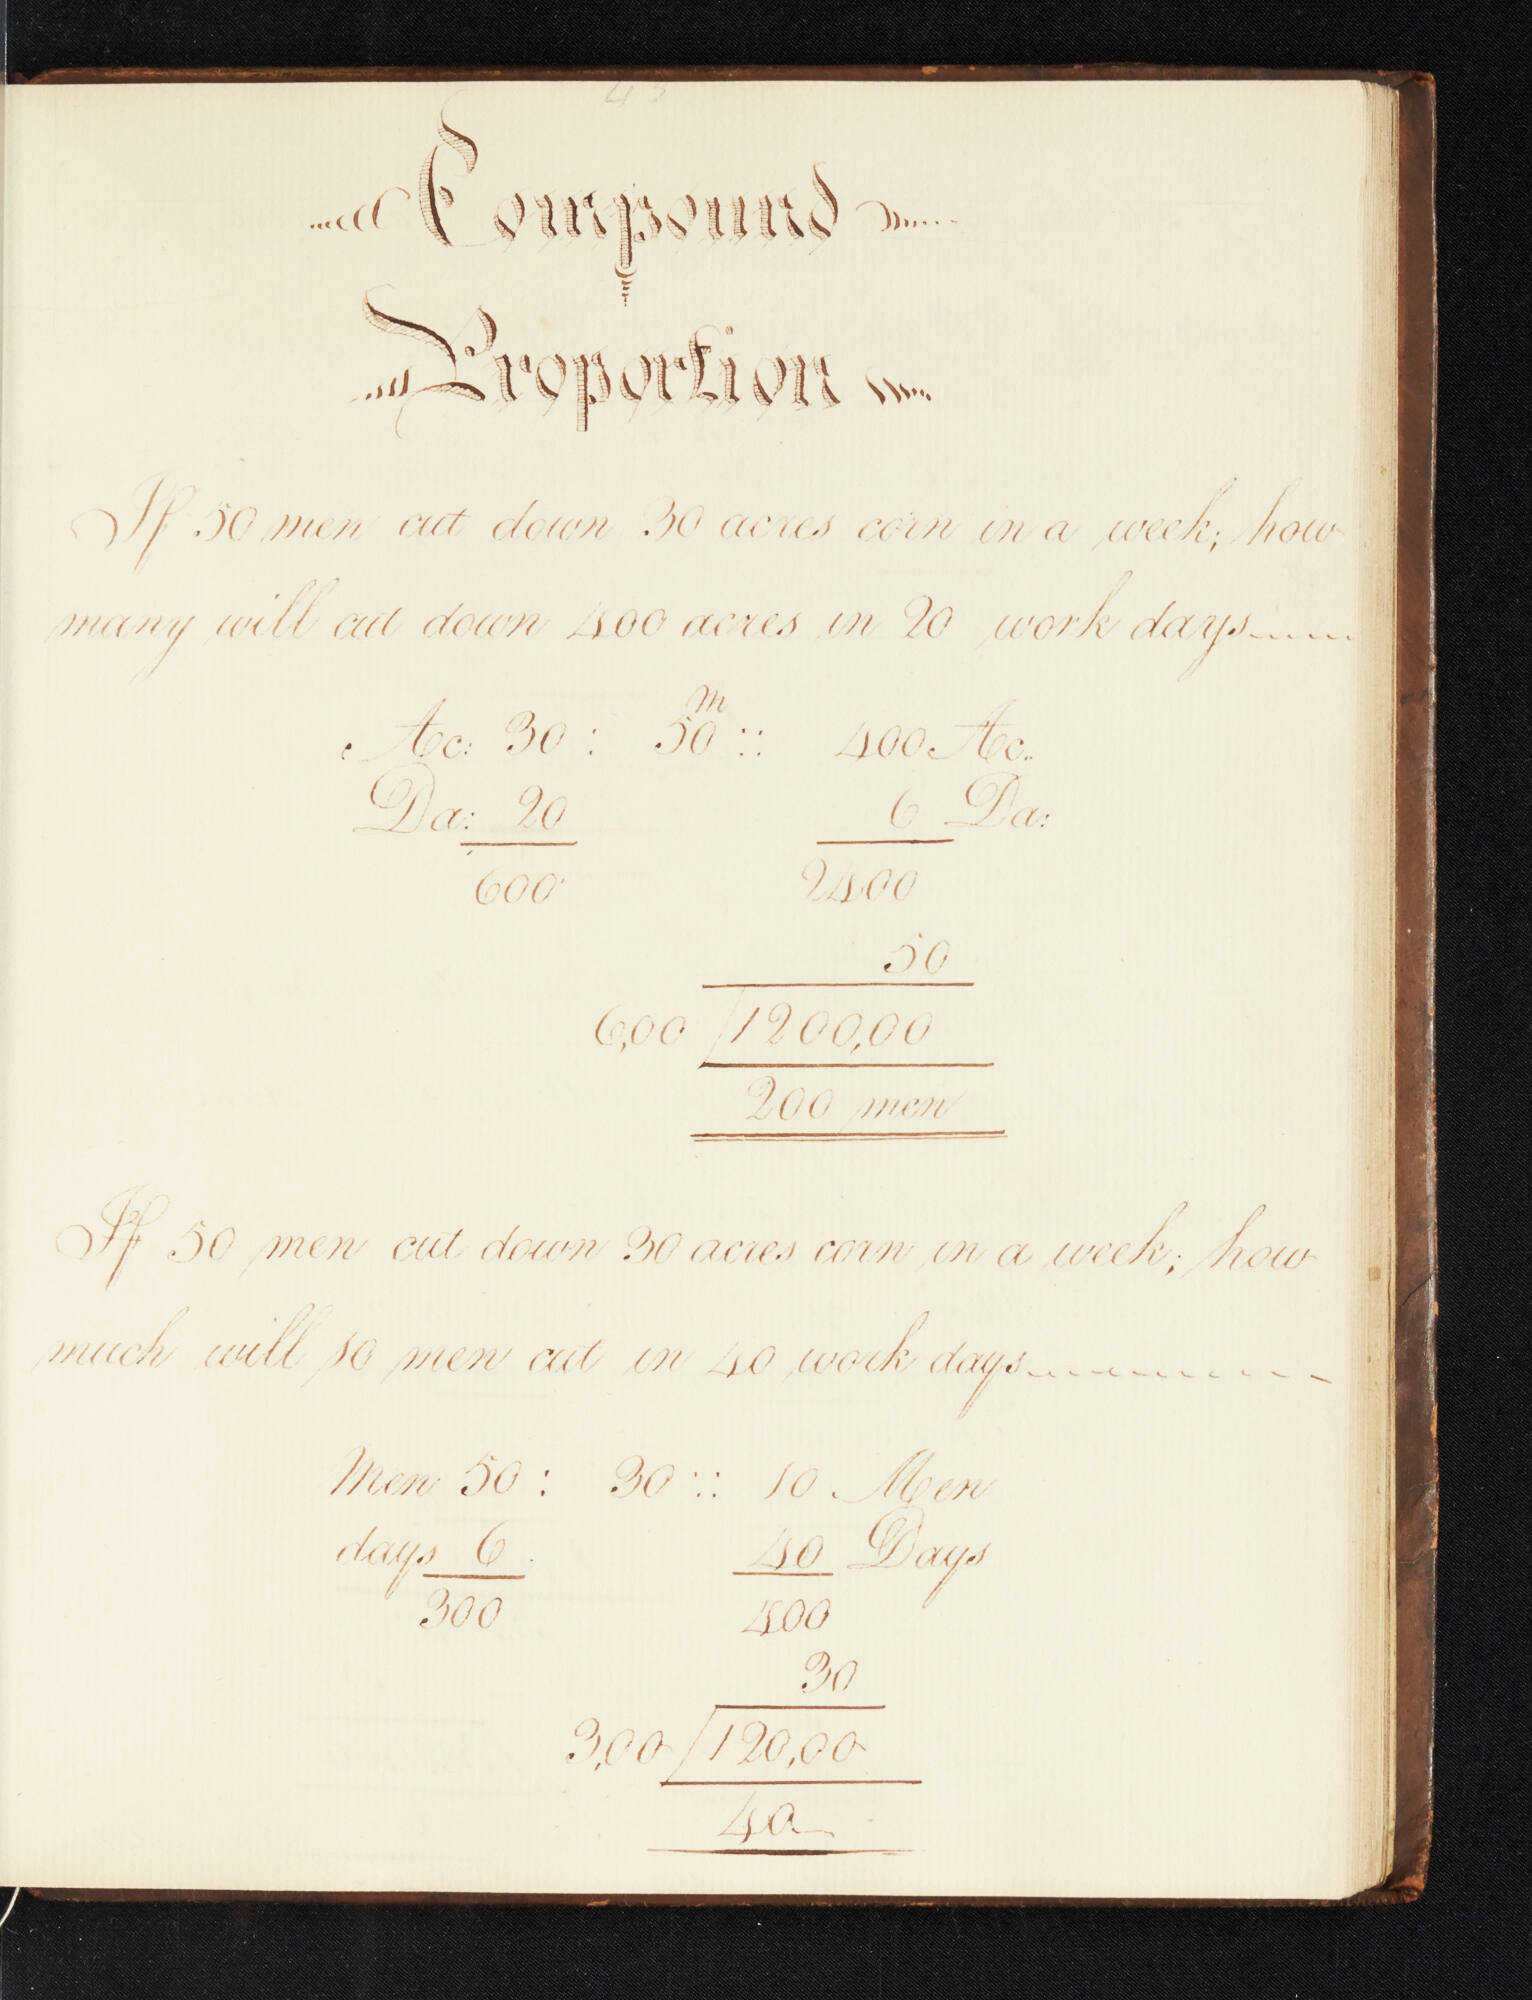 43
Compound
Proportion
If 50 men cut down 30 acres corn in a week; how
many will cut down 400 acres in 20 work days
Ac: 30 : 50 m :: 400 Ac..
Da: 20 6 Da:
600 2400
50
6,00 1200,00
200 men
If 50 men cut down 30 acres corn in a week; how
much will 10 men cut in 40 work days
Men 50 : 30 :: 10 Men
days 6 40 Days
300 400
30
3,00 120,00
40